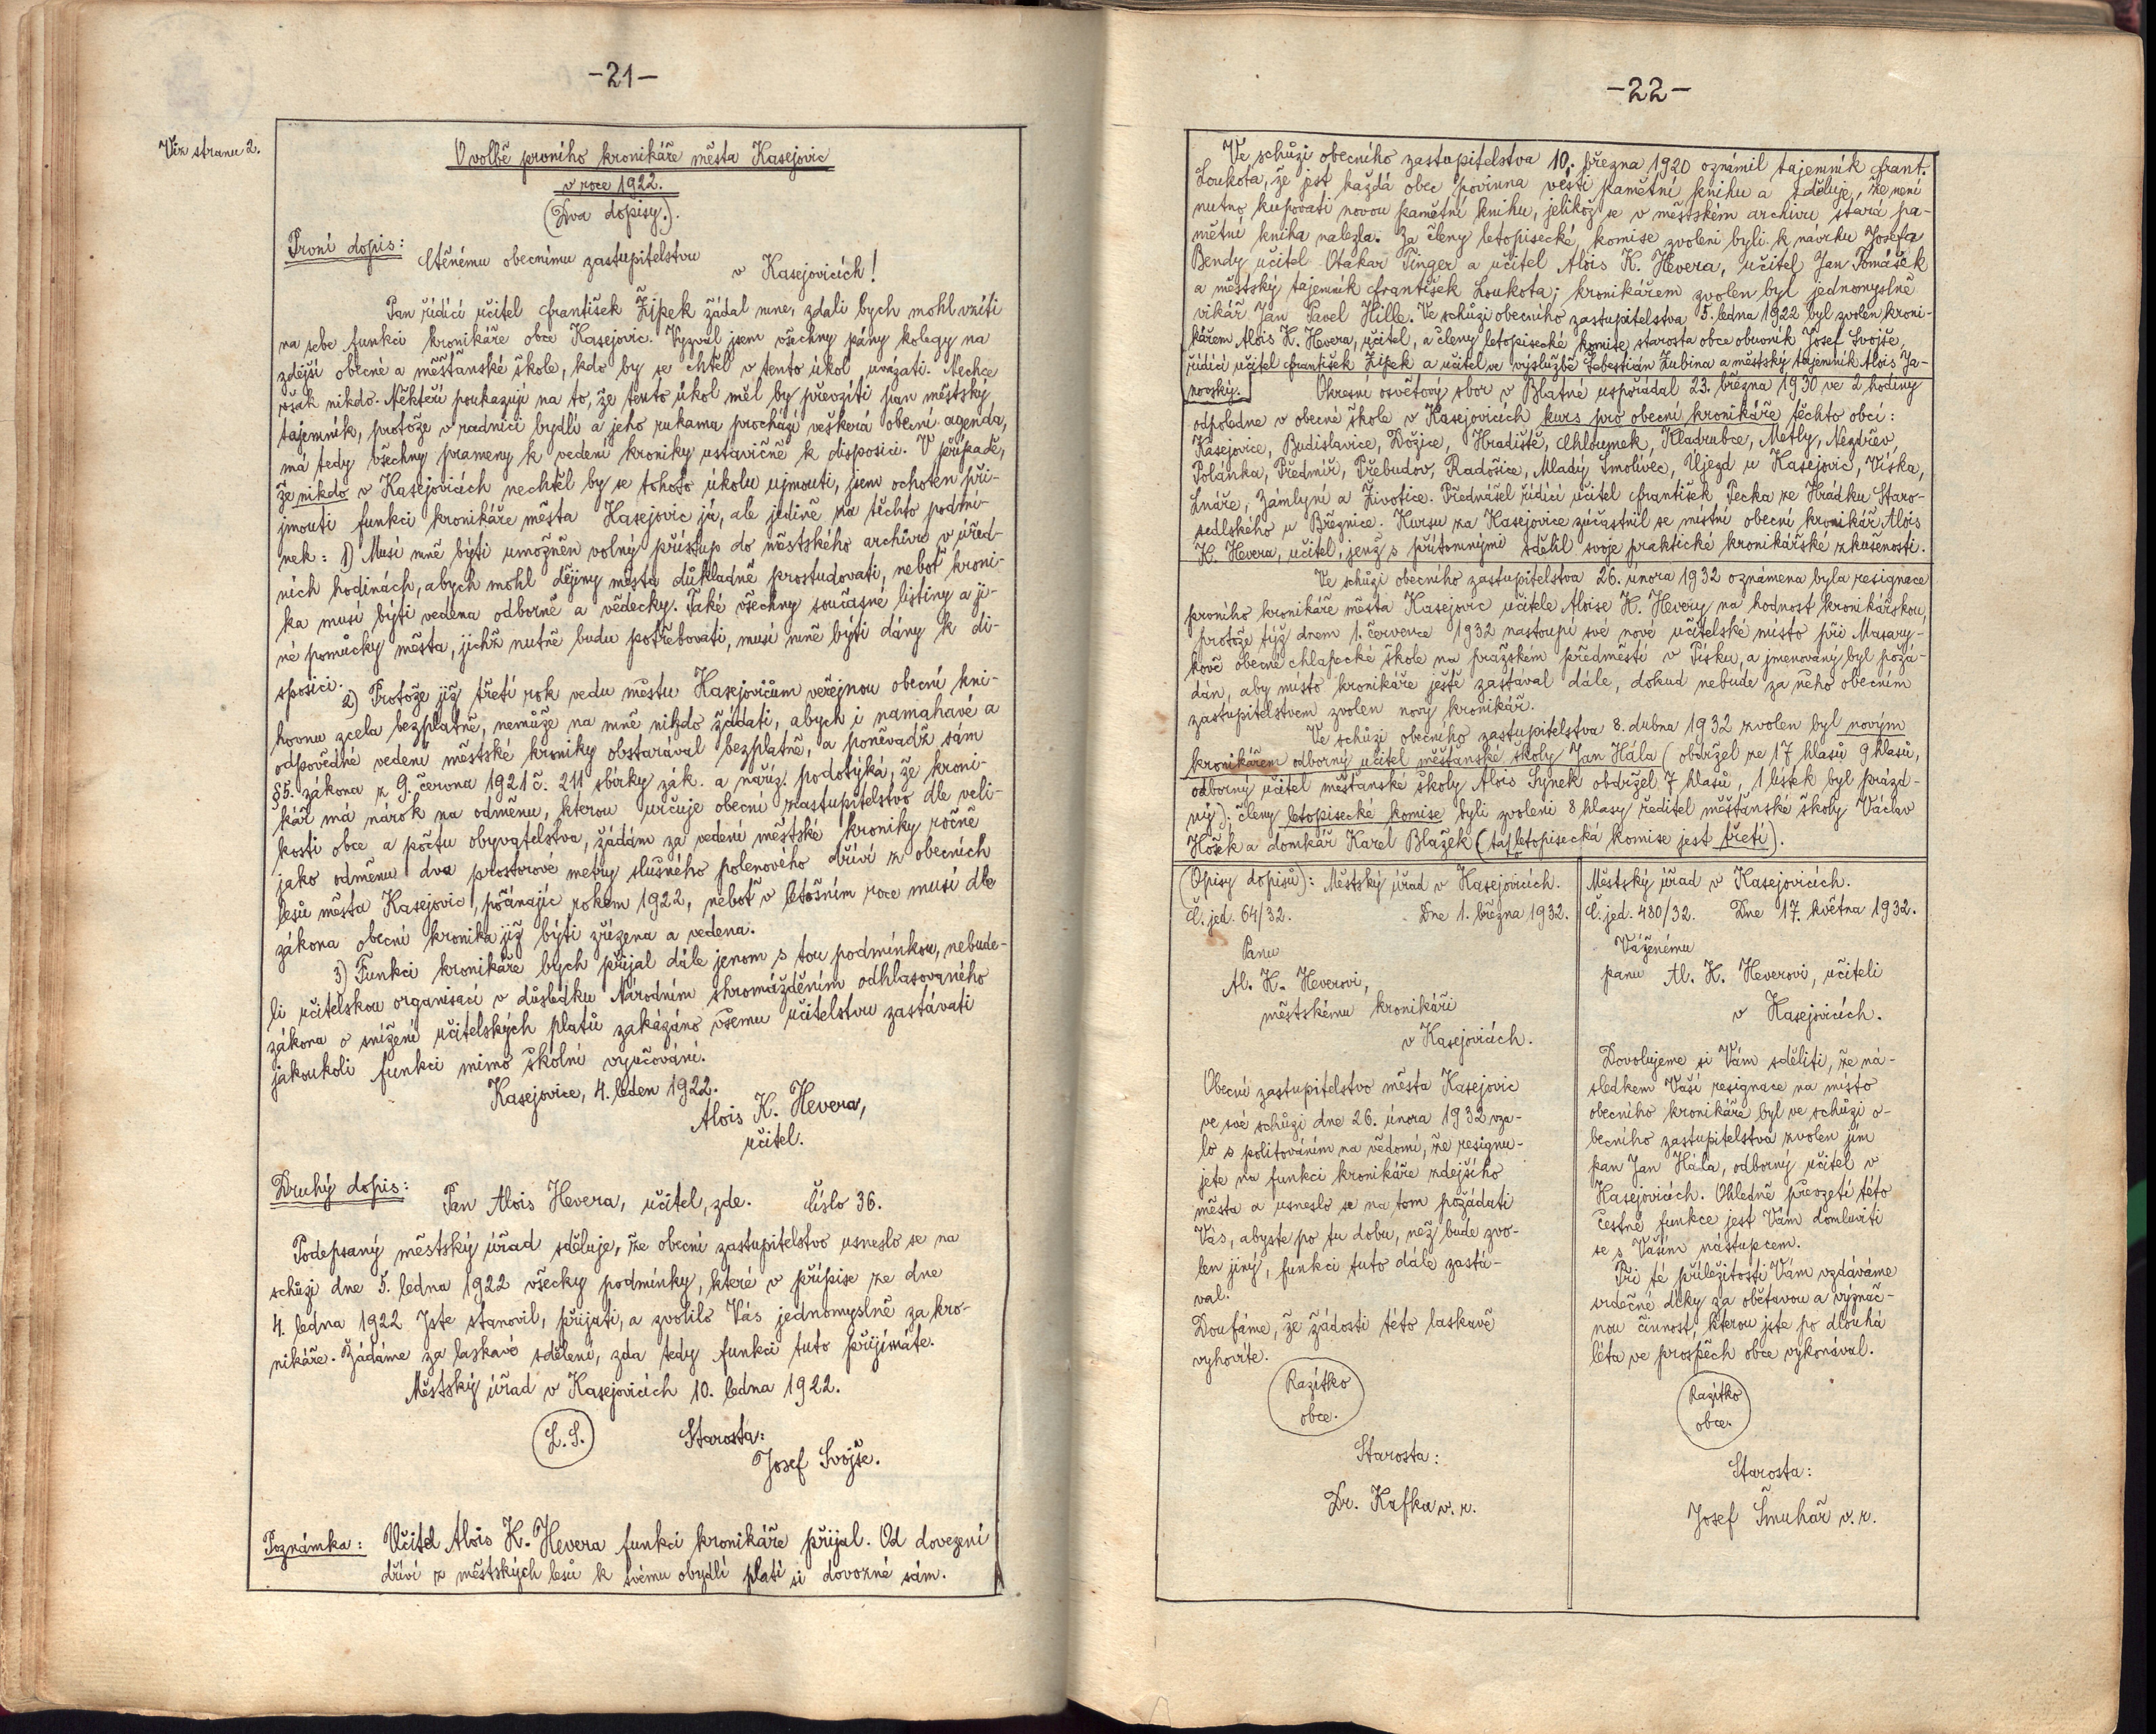 -21-
Viz stranu 2.
O volbě prvního kronikáře města Kasejovic
v roce 1922.
(Dva dopisy.).
První dopis:
Ctěnému obecnímu zastupitelstvu
v Kasejovicích!
Pan řídící učitel František Žípek žádal mne, zdali bych mohl vzíti
na sebe funkci kronikáře obce Kasejovic. Vyzval jsem všechny pány kolegy na
zdejší obecné a měšťanské škole, kdo by se chtěl v tento úkol uvázati. Nechce
však nikdo. Někteří poukazují na to, že tento úkol měl by převzíti pan městský
tajemník, protože v radnici bydlí a jeho rukama prochází veškerá obecní agenda,
má tedy všechny prameny k vedení kroniky ustavičně k disposici. V případě,
že nikdo v Kasejovicích nechtěl by se tohoto úkolu ujmouti, jsem ochoten při-
jmouti funkci kronikáře města Kasejovic já, ale jedině za těchto podmí-
nek: 1) Musí mně býti umožněn volný přístup do městského archivu v úřed-
ních hodinách, abych mohl dějiny města důkladně prostudovati, neboť kroni-
ka musí býti vedena odborně a vědecky. Také všechny současné listiny a ji-
né pomůcky města, jichž nutně budu potřebovati, musí mně býti dány k di-
sposici.
2) Protože již třetí rok vedu městu Kasejovicům veřejnou obecní kni-
hovnu zcela bezplatně, nemůže na mně nikdo žádati, abych i namahavé a
odpovědné vedení městské kroniky obstarával bezplatně, a poněvadž sám
§5. zákona z 9. června 1921 č. 211 sbírky zák. a naříz. podotýká, že kroni-
kář má nárok na odměnu, kterou určuje obecní zastupitelstvo dle veli-
kosti obce a počtu obyvatelstva, žádám za vedení městské kroniky ročně
jako odměnu dva prostorové metry slušného polenového dříví z obecních
lesů města Kasejovic, počínajíc rokem 1922, neboť v letošním roce musí dle
zákona obecní kronika již býti zřízena a vedena.
3) Funkci kronikáře bych přijal dále jenom s tou podmínkou, nebude-
li učitelskou organisací v důsledku Národním shromážděním odhlasovaného
zákona o snížení učitelských platů zakázáno všemu učitelstvu zastávati
jakoukoli funkci mimo školní vyučování.
Kasejovice, 4. leden 1922.
Alois K. Hevera,
učitel.
Druhý dopis:
Pan Alois Hevera, učitel, zde. Číslo 36.
Podepsaný městský úřad sděluje, že obecní zastupitelstvo usneslo se na
schůzi dne 5. ledna 1922 všecky podmínky, které v přípise ze dne
4. ledna 1922 Jste stanovil, přijati, a zvolilo Vás jednomyslně za kro-
nikáře. Žádáme za laskavé sdělení, zda tedy funkci tuto přijímáte.
Městský úřad v Kasejovicích 10. ledna 1922.
L. S.
Starosta:
Josef Svojše.
Poznámka: Učitel Alois K. Hevera funkci kronikáře přijal. Od dovezení
dříví z městských lesů k svému obydlí platí si dovozné sám.
-22-
Ve schůzi obecního zastupitelstva 10. března 1920 oznámil tajemník Frant.
Loukota, že jest každá obec povinna vésti pamětní knihu a sděluje, že není
nutno kupovati novou pamětní knihu, jelikož se v městském archivu stará pa-
mětní kniha nalezla. Za členy letopisecké komise zvoleni byli k návrhu Josefa
Bendy učitel Otakar Tinger a učitel Alois K. Hevera, učitel Jan Tomášek
a městský tajemník František Loukota; kronikářem zvolen byl jednomyslně
vikář Jan Pavel Hille. Ve schůzi obecního zastupitelstva 5. ledna 1922 byl zvolen kroni-
kářem Alois K. Hevera, učitel, a členy letopisecké komise starosta obce obuvník Josef Svojše,
řídící učitel František Žípek a učitel ve výslužbě Šebestián Zubina a městský tajemník Alois Ja-
novský.
Okresní osvětový sbor v Blatné uspořádal 23. března 1930 ve 2 hodiny
odpoledne v obecné škole v Kasejovicích kurs pro obecní kronikáře těchto obcí:
Kasejovice, Budislavice, Dožice, Hradiště, Chloumek, Kladrubce, Metly, Nezdřev,
Polánka, Předmíř, Přebudov, Radošice, Mladý Smolivec, Újezd u Kasejovic, Víska,
Lnáře, Zámlyní a Životice. Přednášel řídící učitel František Pecka ze Hrádku Staro-
sedlského u Březnice. Kursu za Kasejovice zúčastnil se místní obecní kronikář Alois
K. Hevera, učitel, jenž s přítomnými sdělil svoje praktické kronikářské zkušenosti.
Ve schůzi obecního zastupitelstva 26. února 1932 oznámena byla resignace
prvního kronikáře města Kasejovic učitele Aloise K. Hevery na hodnost kronikářskou,
protože týž dnem 1. července 1932 nastoupí své nové učitelské místo při Masary-
kově obecné chlapecké škole na pražském předměstí v Písku, a jmenovaný byl požá-
dán, aby místo kronikáře ještě zastával dále, dokud nebude za něho obecním
zastupitelstvem zvolen nový kronikář.
Ve schůzi obecního zastupitelstva 8. dubna 1932 zvolen byl novým
kronikářem odborný učitel měšťanské školy Jan Hála (obdržel ze 17 hlasů 9 hlasů,
odborný učitel měšťanské školy Alois Synek obdržel 7 hlasů, 1 lístek byl prázd-
ný); členy letopisecké komise byli zvoleni 8 hlasy ředitel měšťanské školy Václav
Hošek a domkář Karel Blažek (tato letopisecká komise jest třetí).
(Opisy dopisů): Městský úřad v Kasejovicích.
Č. jed. 64/32. Dne 1. března 1932.
Panu
Al. K. Heverovi,
městskému kronikáři
v Kasejovicích.
Obecní zastupitelstvo města Kasejovic
ve své schůzi dne 26. února 1932 vza-
lo s politováním na vědomí, že resignu-
jete na funkci kronikáře zdejšího
města a usneslo se na tom požádati
Vás, abyste po tu dobu, než bude zvo-
len jiný, funkci tuto dále zastá-
val.
Doufáme, že žádosti této laskavě
vyhovíte.
Razítko
obce.
Starosta:
Dr. Kafka v. r.
Městský úřad v Kasejovicích.
Č. jed. 480/32. Dne 17. května 1932.
Váženému
panu Al. K. Heverovi, učiteli
v Kasejovicích.
Dovolujeme si Vám sděliti, že ná-
sledkem Vaší resignace na místo
obecního kronikáře byl ve schůzi o-
becního zastupitelstva zvolen jím
pan Jan Hála, odborný učitel v
Kasejovicích. Ohledně převzetí této
čestné funkce jest Vám domluviti
se s Vaším nástupcem.
Při té příležitosti Vám vzdáváme
srdečné díky za obětavou a význač-
nou činnost, kterou jste po dlouhá
léta ve prospěch obce vykonával.
Razítko
obce.
Starosta:
Josef Šmuhař v. r.